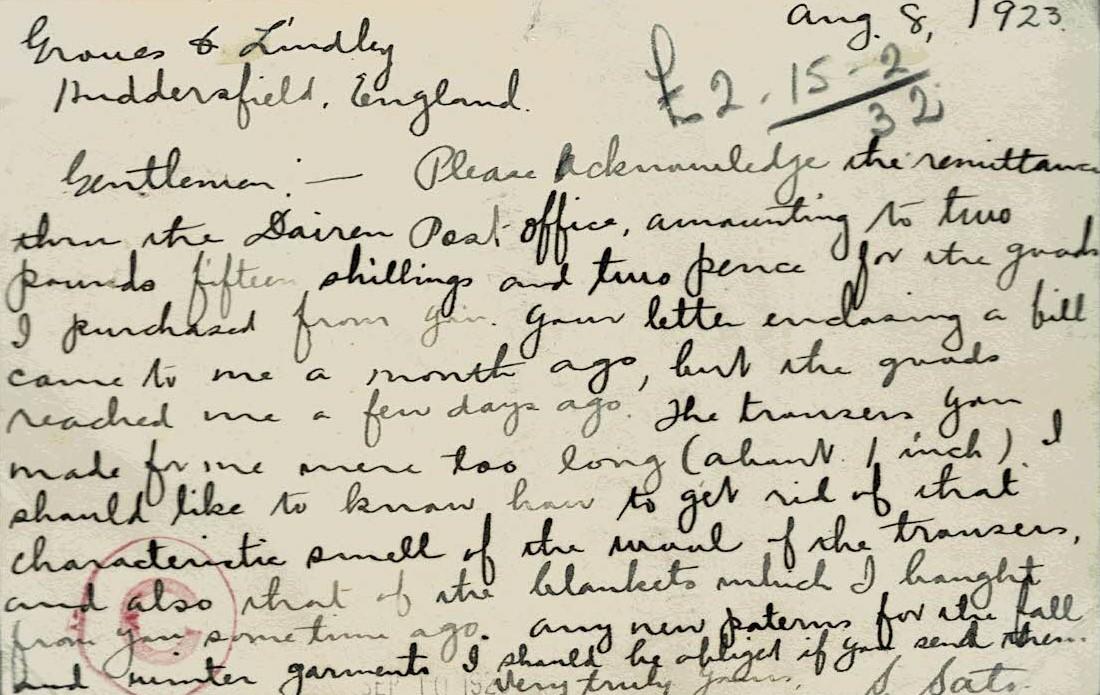 Aug. 8, 1923.
Groves & Lindley
Huddersfield, England.
£2.15-2
32
Gentlemen:— Please Acknowledge the remittance
thru the Dairen Post office, amounting to two
pounds fifteen shillings and two pence for the goods
I purchased from you. Your letter enclosing a bill
came to me a month ago, but the goods
reached me a few days ago. The trousers you
made for me were too long (about 1 inch). I
should like to know how to get rid of that
characteristic smell of the wool of the trousers,
and also that of the blankets which I bought
from you sometime ago. Any new paterns for the fall
and winter garments I should be obliged if you send them.
Very truly yours,
S. Sato
C
SEP 10 192